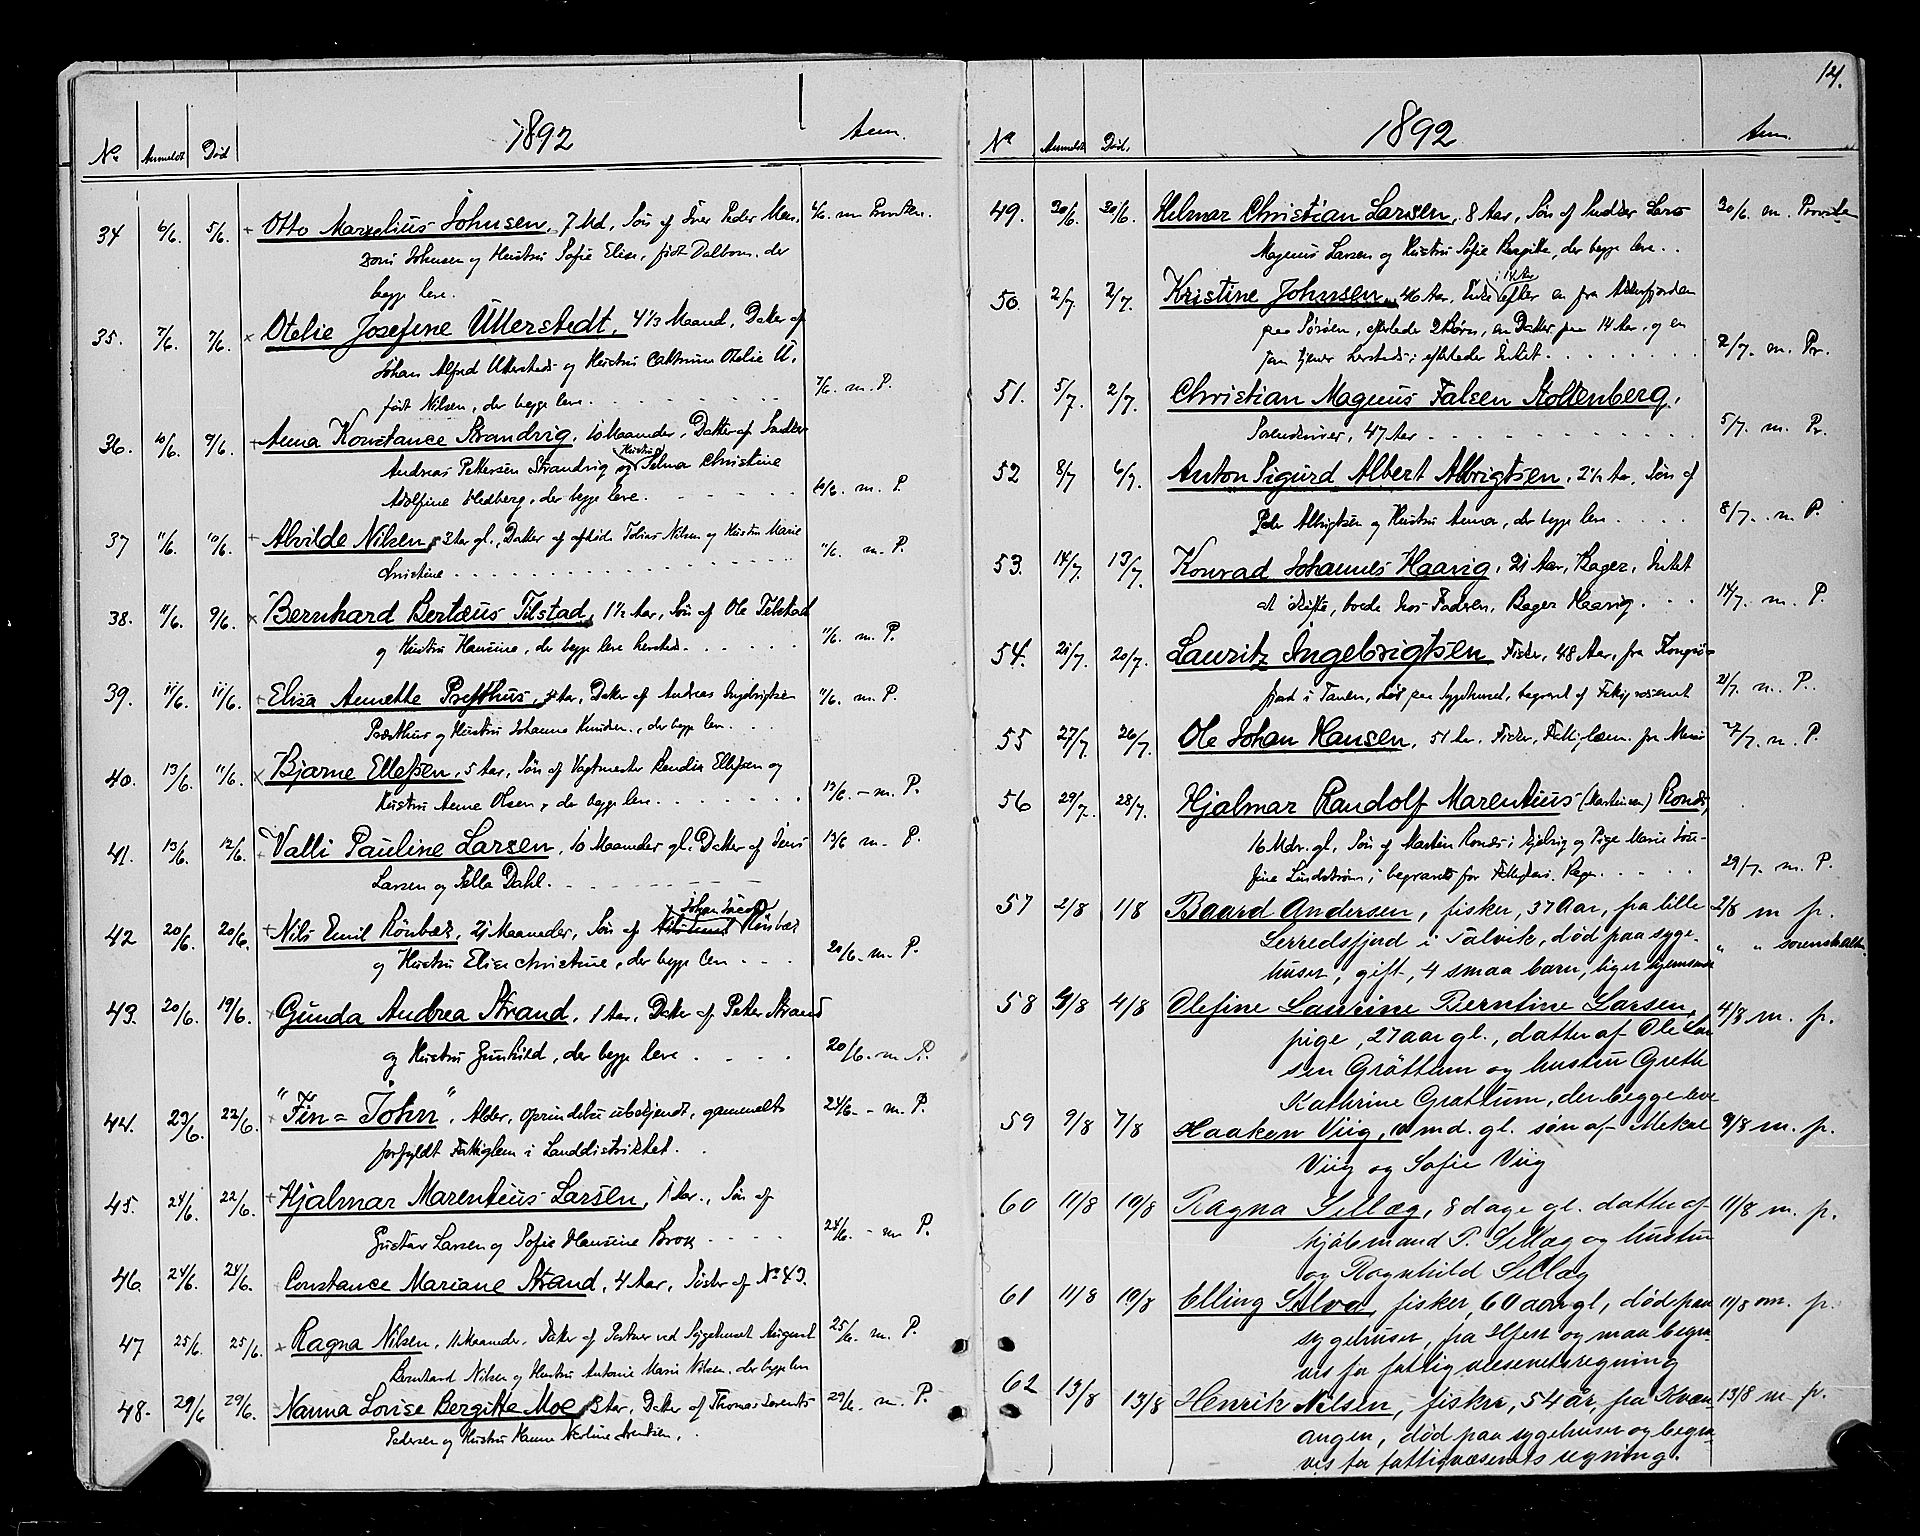 1892
Anm.
No. Anmeldt Död
34 6/6. 5/6. + Otto Marselius Johnsen, 7 Md, Søn af Iver Peder Men-
6/6. m Protok.
Johnsen og Hustru Sofie Elise, født Dalbom, der
begge leve.
35. 7/6. 7/6. x Otelie Josefine Ullerstedt, 4 1/3 Maaned, Datter af
Johan Alfred Ullerstedt og Hustru Cathrine Otelie U,
født Nilsen, der begge leve.
7/6. m. P.
36. 10/6. 9/6. + Anna Konstance Strandvig, 10 Maaneder, Datter af Snedker
Andreas Pettersen Strandvig og Hustru Selma Christine
Adolfine Hedberg, der begge leve.
10/6. m. P.
37 11/6. 10/6. + Alvilde Nilsen, 3 Aar gl., Datter af afdøde Tobias Nilsen og Hustru Marie
Christine
11/6. m. P.
38. 11/6. 9/6. x Bernhard Bertæus Tilstad, 1 1/2 Aar, Søn af Ole Tilstad
og Hustru Hansine, der begge leve hersteds.
11/6. m. P.
39. 11/6. 11/6. + Elisa Annette Præsthus, Aar, Datter af Andreas Ingebrigtsen
Præsthus og Hustru Johanna Knudsen, der begge leve.
11/6. m. P.
40. 13/6. 11/6. x Bjarne Ellefsen, 5 Aar, Søn af Vagtmester Ellefsen og
Hustru Anne Olsen, der begge leve.
13/6. - m. P.
41. 13/6. 12/6. + Valli Pauline Larsen, 10 Maaneder gl. Datter af Jens
Larsen og Dahl.
13/6 m. P.
42 20/6. 20/6. + Nils Emil Rönbæk, 21 Maaneder, Søn af Johan Jacob Rönbæk
og Hustru Elise Christine, der begge leve
20/6. m. P.
43. 20/6. 19/6. x Gunda Andrea Strand, 1 Aar, Datter af Peter Strand
og Hustru Gunhild, der begge leve
20/6. m P.
44. 23/6. 22/6. + "Fin = John", Alder, oprindelse ubekjendt, gammelt
forfyldt Fattiglem i Landdistriktet.
24/6. - m. P.
45. 24/6. 22/6. + Hjalmar Marentius Larsen, 1 Aar., Søn af
Gustav Larsen og Sofie Hansine
24/6. - m P.
46. 24/6. 24/6. Constance Mariane Strand, 4 Aar, Søster af No 43.
47 25/6. 25/6. x Ragna Nilsen, 11 Maaneder, Datter af Portner ved Sygehuset August
Bernhard Nilsen og Hustru Antonie Marie Nilsen, der begge leve
25/6. m. P.
48. 29/6 29/6. Nanna Lovise Bergitte Moe, 3 Aar, Datter af Thomas Lorents
Pedersen og Hustru Hanne Nicoline Arentsen.
29/6. m. P.
121.
1892
Anm.
No Anmeldt Död.
49. 30/6. 30/6. Helmar Christian Larsen, 8 Aar, Søn af Snedker Lars
30/6. m. Protok
Magnus Larsen og Hustru Sofie Bergitte, der begge leve.
50. 2/7. 2/7. Kristine Johnsen, 46 Aar, Enke i 14 Aar efter en fra Altenfjorden
paa Sørøen, efterlader 2 Børn, en Datter paa 14 Aar, og en
som tjener hersteds; efterlader Intet.
2/7. m. Pr.
51. 5/7. 2/7. Christian Magnus Falsen Stoltenberg,
Sorenskriver, 47 Aar
5/7. m. Pr.
52 8/7 6/7. Anton Sigurd Albert Albrigtsen, 2 1/2 Aar, Søn af
Peder Albrigtsen og Hustru Anna, der begge leve
8/7. m P.
53. 14/7. 13/7. Konrad Johannes Haavig, 21 Aar, Bager, Intet
at skifte, boede hos Fadren, Bager Haavig.
14/7. m. P.
54. 21/7. 20/7. Lauritz Ingebrigtsen Fisker, 48 Aar, fra Kongs-
fjord i Tanen, død paa Sygehuset, begravet af Fattigvæsenet
21/7. m. P.
55 27/7. 26/7. Ole Johan Hansen, 51 Aar. Fisker, Fattiglem. fra
27/7. m. P.
56 29/7. 28/7. Hjalmar Randolf Marentius (Martinsen) Ronds,
16 Mdr. gl, Søn af Martin Ronds i Kjelvig og Pige Marie Jose-
fine Lindström, begravet for Fattigvæs. Regn.
29/7. m. P.
57 2/8 1/8 Baard Andersen, fisker, 37 Aar, fra lille
2/8 m p.
Lerredsfjord i Talvik, död paa syge-
" " sorenskriveren
huset, gift, 4 smaa barn, liget hjemsendt
58 4/8 4/8 Olefine Laurine Berntine Larsen,
4/8 m. p.
pige, 27 aar gl., datter af Ole Lar
sen Gröttum og hustru Grethe
Kathrine Grøttum, der begge leve
59 9/8 7/8 Haakon Viig, 10 md. gl. søn af Mekal
9/8 m. p.
Viig og Sofie Viig
60 11/8 10/8 Ragna Sellæg, 8 dage gl. datter af
11/8 m. p.
hjälsmand P. Sellæg og hustru
og Ragnhild Sellæg
61 11/8 10/8 Elling Silva, fisker, 60 aar gl, død paa
11/8 m. p.
sygehuset, fra og maa begra
ves for fattigvæsenets regning
62 13/8 13/8 Henrik Nilsen, fisker, 54 år, fra Kvæn
13/8 m p.
angen, død paa sygehuset og begra-
ves for fattigvæsenets regning.